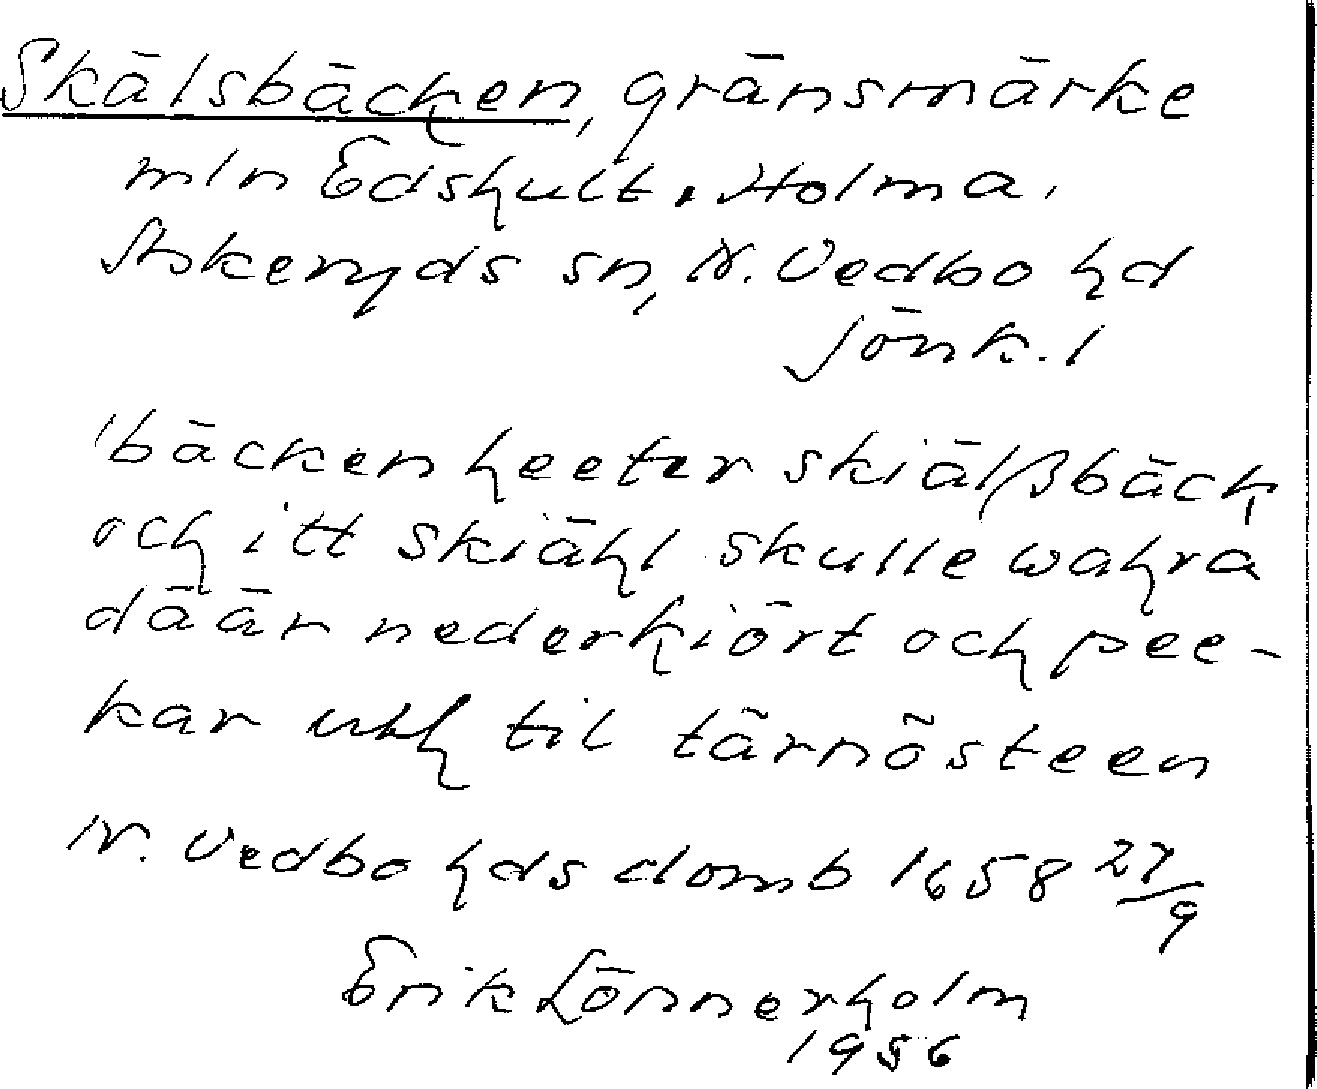 Skälsbäcken, gränsmärke
mln Edshult o. Holma,
Askeryds sn, N. Vedbo hd
Jönk. l
'bäcken heeter skiälßbäck
och itt skiähl skulle wahra
däär nederkiört och pee-
kar uth til tärnösteen
N. Vedbo hds domb 1658 27/9
Erik Lönnerholm
1956